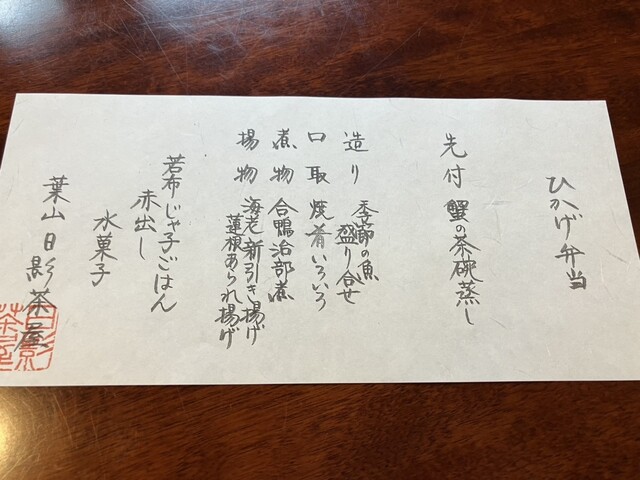 ひかげ弁当
先付 蟹の茶碗蒸し
造り 季節の魚
盛り合せ
口取 焼肴いろいろ
煮物 合鴨治部煮
揚物 海老新引き揚げ
蓮根あられ揚げ
若布じゃ子ごはん
赤出し
水菓子
葉山 日影茶屋
日影
茶屋